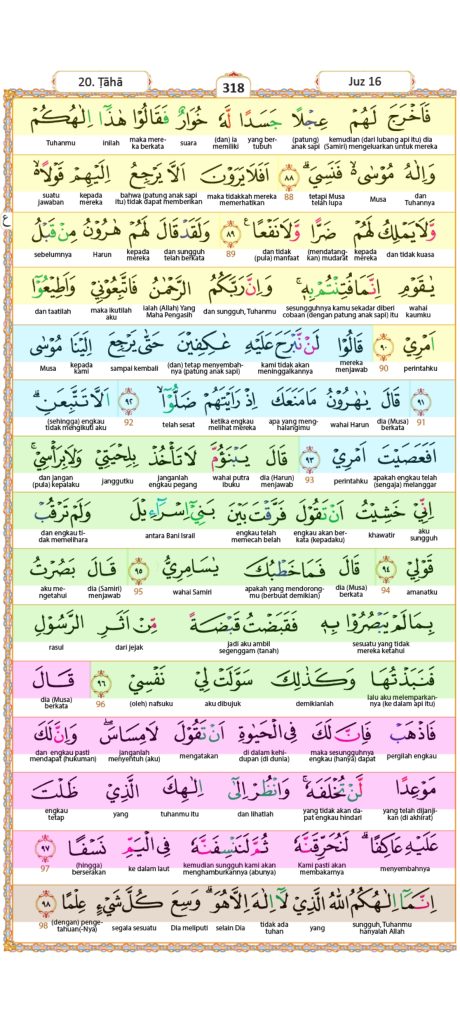 20. Ṭāhā
318
Juz 16
فَاَخْرَجَ لَهُمْ عِجْلًا جَسَدًا لَّهٗ خُوَارٌ فَقَالُوْا هٰذَآ اِلٰهُكُمْ
kemudian (dari lubang api itu) dia (Samiri) mengeluarkan untuk mereka (patung) anak sapi yang ber-tubuh (dan) ia memiliki suara maka mere-ka berkata inilah Tuhanmu
وَاِلٰهُ مُوْسٰى ەۙ فَنَسِيَ ۗ ٨٨ اَفَلَا يَرَوْنَ اَلَّا يَرْجِعُ اِلَيْهِمْ قَوْلًا ەۙ
dan Tuhannya Musa tetapi Musa telah lupa 88 maka tidakkah mereka memerhatikan bahwa (patung anak sapi itu) tidak dapat memberikan kepada mereka suatu jawaban
وَّلَا يَمْلِكُ لَهُمْ ضَرًّا وَّلَا نَفْعًا ࣖ ٨٩ وَلَقَدْ قَالَ لَهُمْ هٰرُوْنُ مِنْ قَبْلُ
ع
dan tidak kuasa kepada mereka (mendatang-kan) mudarat dan tidak (pula) manfaat 89 dan sungguh telah berkata kepada mereka Harun sebelumnya
يٰقَوْمِ اِنَّمَا فُتِنْتُمْ بِهٖۚ وَاِنَّ رَبَّكُمُ الرَّحْمٰنُ فَاتَّبِعُوْنِيْ وَاَطِيْعُوْٓا
wahai kaumku sesungguhnya kamu sekadar diberi cobaan (dengan patung anak sapi) itu dan sungguh, Tuhanmu ialah (Allah) Yang Maha Pengasih maka ikutilah aku dan taatilah
اَمْرِيْ ٩٠ قَالُوْا لَنْ نَّبْرَحَ عَلَيْهِ عٰكِفِيْنَ حَتّٰى يَرْجِعَ اِلَيْنَا مُوْسٰى
perintahku 90 mereka menjawab kami tidak akan meninggalkannya (dan) tetap menyembah-nya (patung anak sapi) sampai kembali kepada kami Musa
٩١ قَالَ يٰهٰرُوْنُ مَا مَنَعَكَ اِذْ رَاَيْتَهُمْ ضَلُّوْٓاۙ ٩٢ اَلَّا تَتَّبِعَنِۗ
91 dia (Musa) berkata wahai Harun apa yang meng-halangimu ketika engkau melihat mereka telah sesat 92 (sehingga) engkau tidak mengikuti aku
اَفَعَصَيْتَ اَمْرِيْ ٩٣ قَالَ يَبْنَؤُمَّ لَا تَأْخُذْ بِلِحْيَتِيْ وَلَا بِرَأْسِيْۚ
apakah engkau telah (sengaja) melanggar perintahku 93 dia (Harun) menjawab wahai putra ibuku janganlah engkau pegang janggutku dan jangan (pula) kepalaku
اِنِّيْ خَشِيْتُ اَنْ تَقُوْلَ فَرَّقْتَ بَيْنَ بَنِيْٓ اِسْرَاۤءِيْلَ وَلَمْ تَرْقُبْ
aku sungguh khawatir engkau akan ber-kata (kepadaku) engkau telah memecah belah antara Bani Israil dan engkau ti-dak memelihara
قَوْلِيْ ٩٤ قَالَ فَمَا خَطْبُكَ يٰسَامِرِيُّ ٩٥ قَالَ بَصُرْتُ
amanatku 94 dia (Musa) berkata apakah yang mendorong-mu (berbuat demikian) wahai Samiri 95 dia (Samiri) menjawab aku me-ngetahui
بِمَا لَمْ يَبْصُرُوْا بِهٖ فَقَبَضْتُ قَبْضَةً مِّنْ اَثَرِ الرَّسُوْلِ
sesuatu yang tidak mereka ketahui jadi aku ambil segenggam (tanah) dari jejak rasul
فَنَبَذْتُهَا وَكَذٰلِكَ سَوَّلَتْ لِيْ نَفْسِيْ ٩٦ قَالَ
lalu aku melemparkan-nya (ke dalam api itu) demikianlah aku dibujuk (oleh) nafsuku 96 dia (Musa) berkata
فَاذْهَبْ فَاِنَّ لَكَ فِى الْحَيٰوةِ اَنْ تَقُوْلَ لَا مِسَاسَۖ وَاِنَّ لَكَ
pergilah engkau maka sesungguhnya engkau (hanya) dapat di dalam kehi-dupan (di dunia) mengatakan janganlah menyentuh (aku) dan engkau pasti mendapat (hukuman)
مَوْعِدًا لَّنْ تُخْلَفَهٗۚ وَانْظُرْ اِلٰٓى اِلٰهِكَ الَّذِيْ ظَلْتَ
yang telah dijanji-kan (di akhirat) yang tidak akan da-pat engkau hindari dan lihatlah tuhanmu itu yang engkau tetap
عَلَيْهِ عَاكِفًاۗ لَنُحَرِّقَنَّهٗ ثُمَّ لَنَنْسِفَنَّهٗ فِى الْيَمِّ نَسْفًا ٩٧
menyembahnya Kami pasti akan membakarnya kemudian sungguh kami akan menghamburkannya (abunya) ke dalam laut (hingga) berserakan 97
اِنَّمَآ اِلٰهُكُمُ اللّٰهُ الَّذِيْ لَآ اِلٰهَ اِلَّا هُوَۗ وَسِعَ كُلَّ شَيْءٍ عِلْمًا ٩٨
sungguh, Tuhanmu hanyalah Allah yang tidak ada tuhan selain Dia Dia meliputi segala sesuatu (dengan) penge-tahuan(-Nya) 98